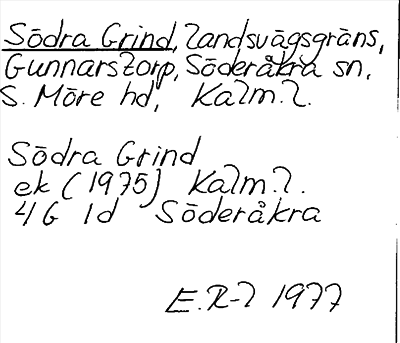 Södra Grind, landsvägsgräns,
Gunnarstorp, Söderåkra sn,
S. Möre hd, Kalm. l.
Södra Grind
ek (1975) Kalm. l.
4G 1d Söderåkra
E.R-l 1977